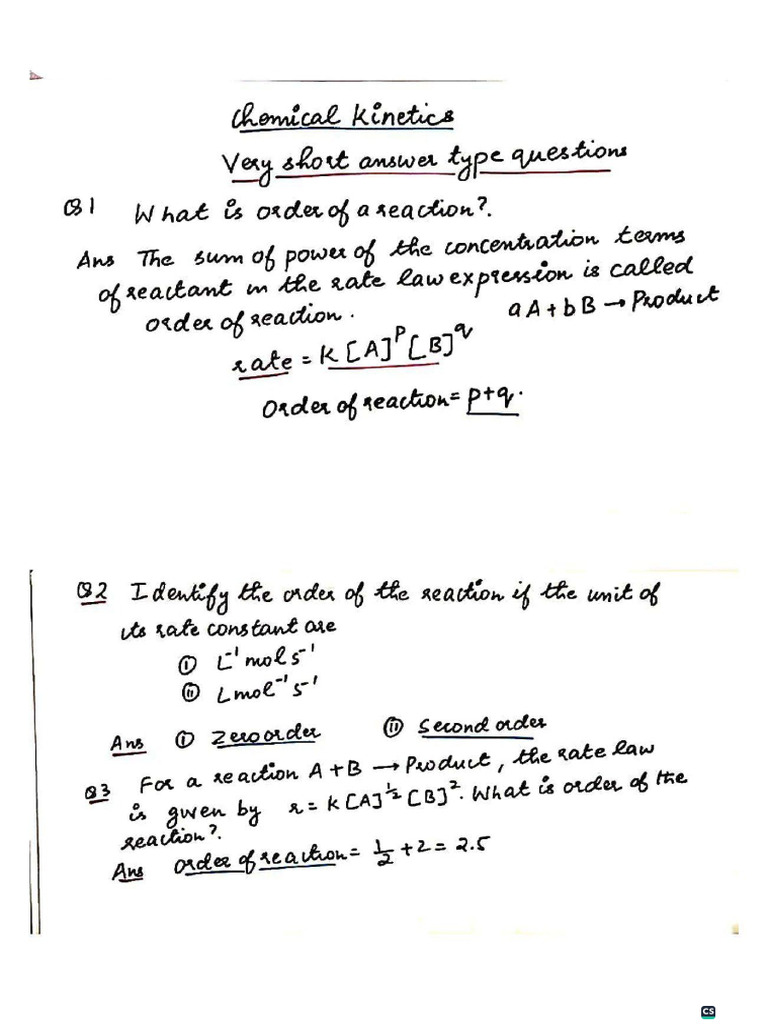 Chemical Kinetics
Very short answer type questions
Q1 What is order of a reaction?.
Ans The sum of power of the concentration terms
of reactant in the rate law expression is called
order of reaction. aA + bB → Product
rate = K[A]^p [B]^q
Order of reaction = p+q.
Q2 Identify the order of the reaction if the unit of
its rate constant are
(i) L⁻¹ mol s⁻¹
(ii) L mol⁻¹ s⁻¹
Ans (i) Zero order (ii) Second order
Q3 For a reaction A+B → Product, the rate law
is given by r = K[A]^½ [B]². What is order of the
reaction?.
Ans Order of reaction = 1/2 + 2 = 2.5
CS